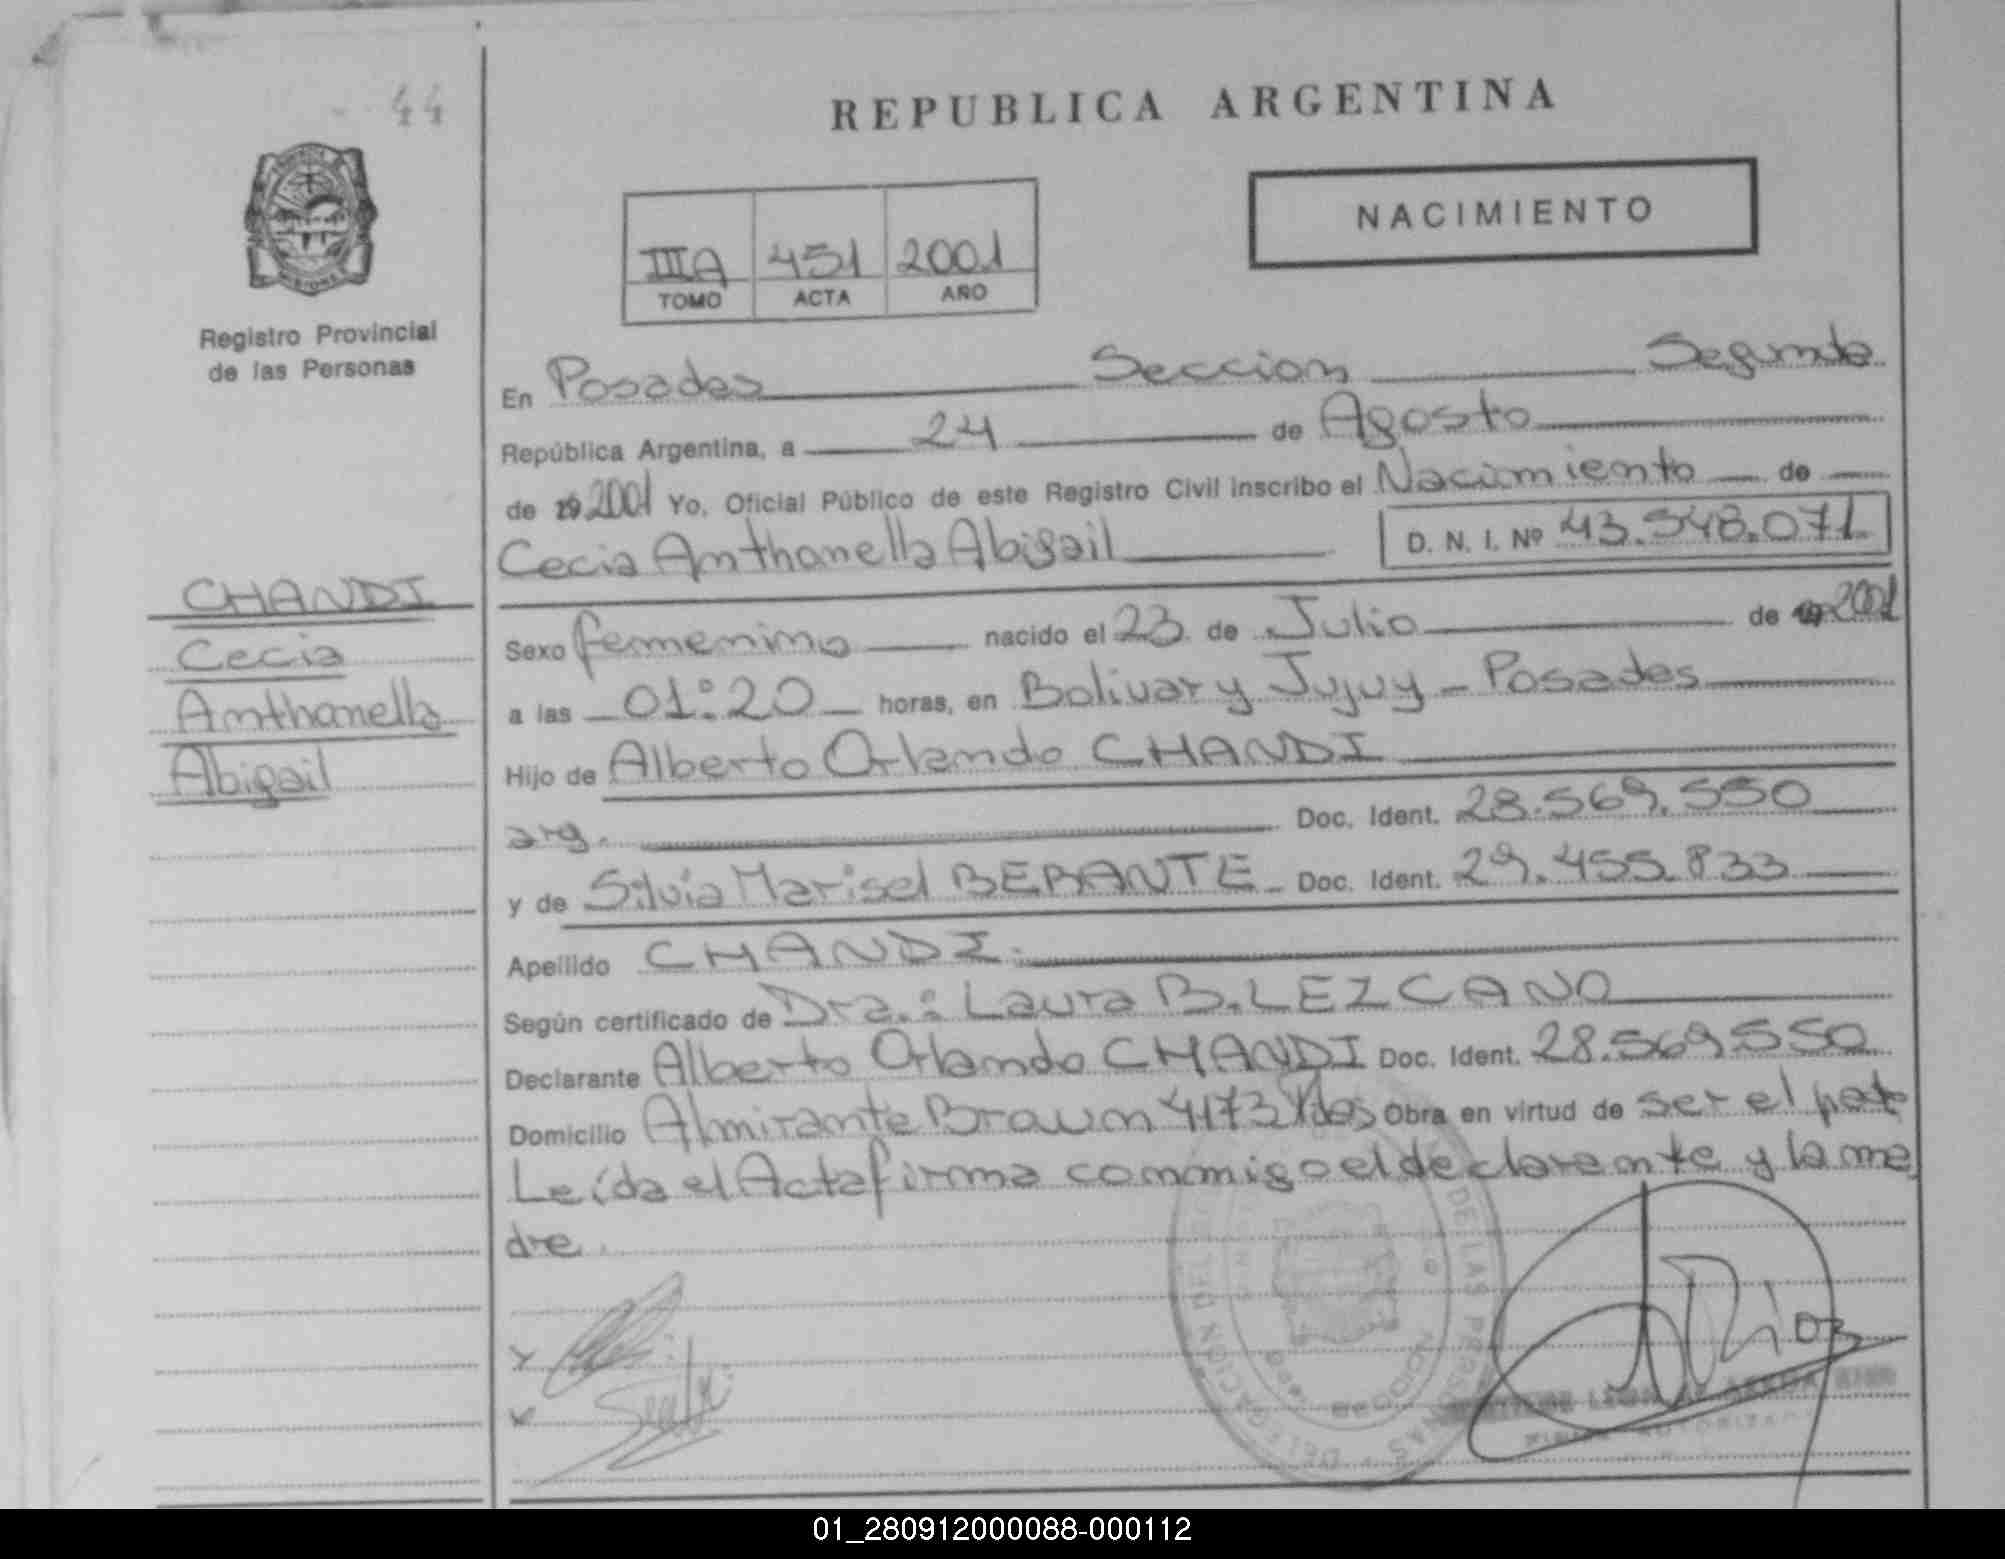 44
REPUBLICA ARGENTINA
NACIMIENTO
IIIA 451 2001
TOMO ACTA AÑO
Registro Provincial
de las Personas
En Posadas Seccion Segunda
República Argentina, a 24 de Agosto
de 19 2001 Yo, Oficial Público de este Registro Civil inscribo el Nacimiento de
Cecia Anthonella Abigail D. N. I. Nº 43.548.071
CHANDI
Cecia
Anthonella
Abigail
Sexo femenino nacido el 23 de Julio de 19 2001
a las 01:20 horas, en Bolivar y Jujuy - Posadas
Hijo de Alberto Orlando CHANDI
arg. Doc. Ident. 28.569.550
y de Silvia Marisel BERANTE Doc. Ident. 29.455.833
Apellido CHANDI.
Según certificado de Dra.: Laura B. LEZCANO
Declarante Alberto Orlando CHANDI Doc. Ident. 28.569.550
Domicilio Almirante Brown 4173 Obra en virtud de ser el
Leída el Acta firma conmigo el declarante y la ma
dre.
DELEGACION DE LAS PERSONAS
Rios
01_280912000088-000112